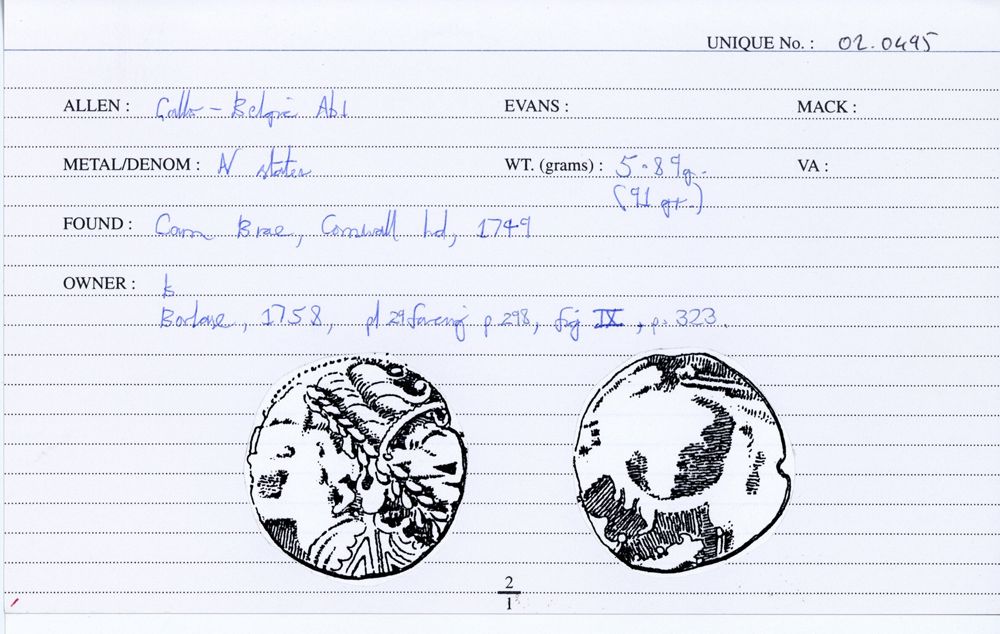 UNIQUE No. : 02.0495
ALLEN : Gallo-Belgic Ab1 EVANS : MACK :
METAL/DENOM : N stater WT. (grams) : 5.89g. VA :
(91 gr.)
FOUND : Carn Brae, Cornwall hd, 1749
OWNER :
Borlase, 1758, pl 29 facing p.298, fig IX, p. 323.
2
1